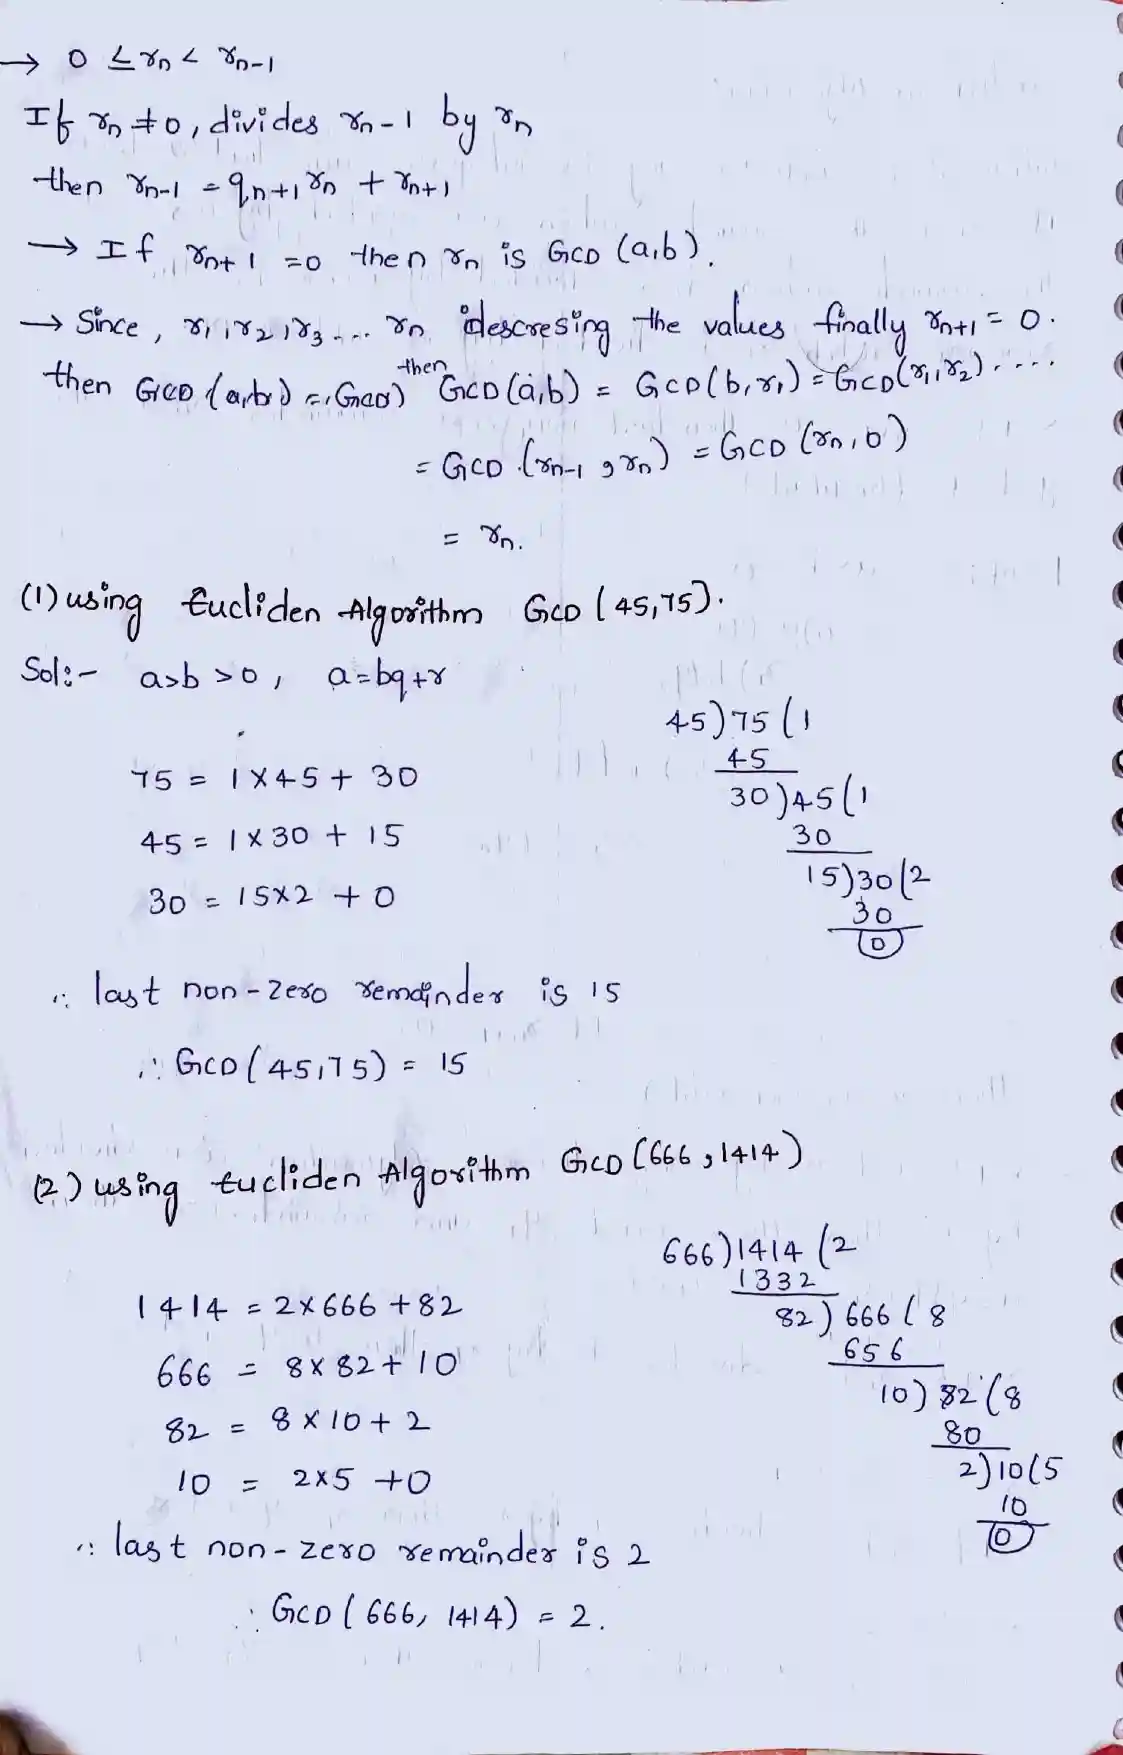 → 0 ≤ rₙ < rₙ₋₁
If rₙ ≠ 0, divides rₙ₋₁ by rₙ
then rₙ₋₁ = qₙ₊₁ rₙ + rₙ₊₁
→ If rₙ₊₁ = 0 then rₙ is GCD (a,b).
→ Since, r₁, r₂, r₃ .... rₙ descresing the values finally rₙ₊₁ = 0.
then then GCD (a,b) = GCD (b, r₁) = GCD (r₁, r₂) ....
= GCD (rₙ₋₁, rₙ) = GCD (rₙ, 0)
= rₙ.
(1) using Eucliden Algorithm GCD (45,75).
Sol:- a>b>0, a=bq+r
45)75(1
45
75 = 1×45 + 30
30)45(1
45 = 1×30 + 15
30
15)30(2
30 = 15×2 + 0
30
0
∴ last non-zero remainder is 15
∴ GCD (45,75) = 15
(2) using Eucliden Algorithm GCD (666, 1414)
666)1414(2
1332
1414 = 2×666 + 82
82)666(8
656
666 = 8×82 + 10
10)82(8
82 = 8×10 + 2
80
2)10(5
10 = 2×5 + 0
10
0
∴ last non-zero remainder is 2
∴ GCD (666, 1414) = 2.